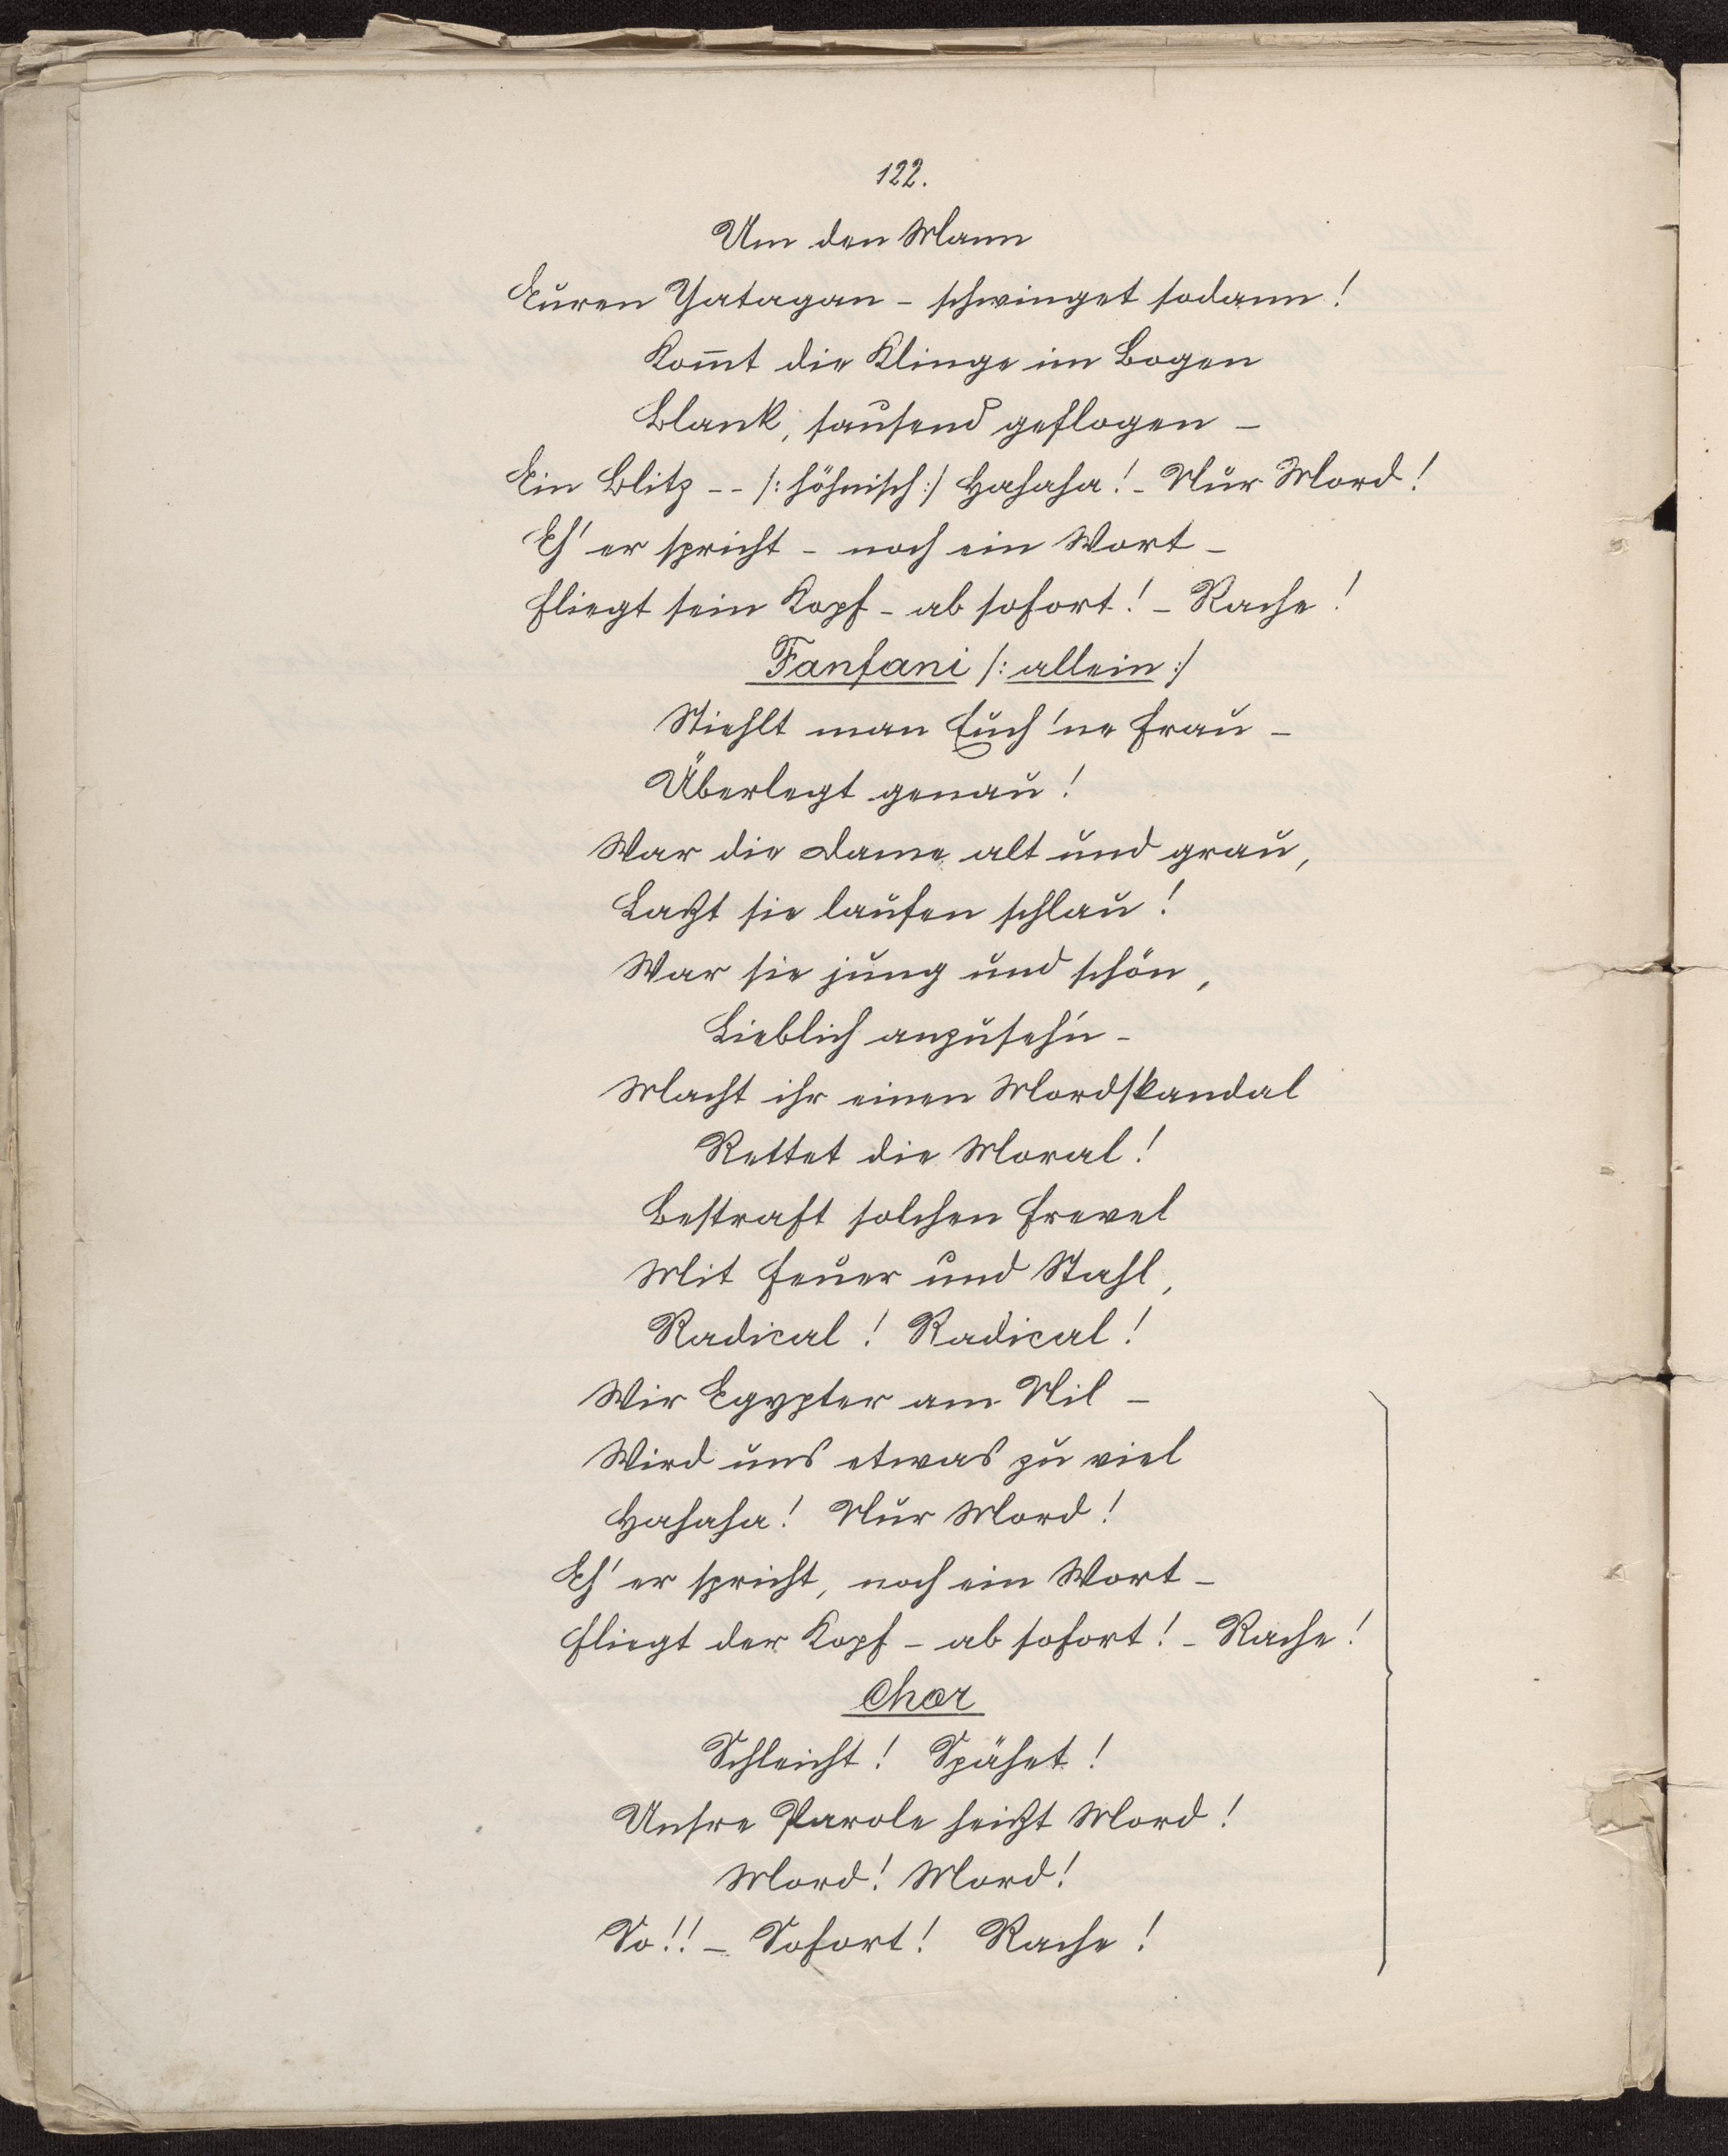 122.
Um den Mann
Euren Yatagan – schwinget sodann!
Kom̄t die Klinge im Bogen
Blank, sausend geflogen –
Ein Blitz – – /: höhnisch :/ Hahaha! – Nur Mord!
Eh' er spricht – noch ein Wort –
Fliegt sein Kopf – ab sofort! – Rache!
Fanfani /: allein :/
Stiehlt man Euch 'ne Frau –
Überlegt genau!
War die Dame alt und grau,
Laßt sie laufen schlau!
War sie jung und schön,
Lieblich anzuseh'n –
Macht ihr einen Mordskandal
Rettet die Moral!
Bestraft solchen Frevel
Mit Feuer und Stahl,
Radical! Radical!
Wir Egypter am Nil –
Wird uns etwas zu viel
Hahaha! Nur Mord!
Eh' er spricht, noch ein Wort –
Fliegt der Kopf – ab sofort! – Rache!
Chor
Schleicht! Spähet!
Unsre Parole heißt Mord!
Mord! Mord!
So!! – Sofort! Rache!